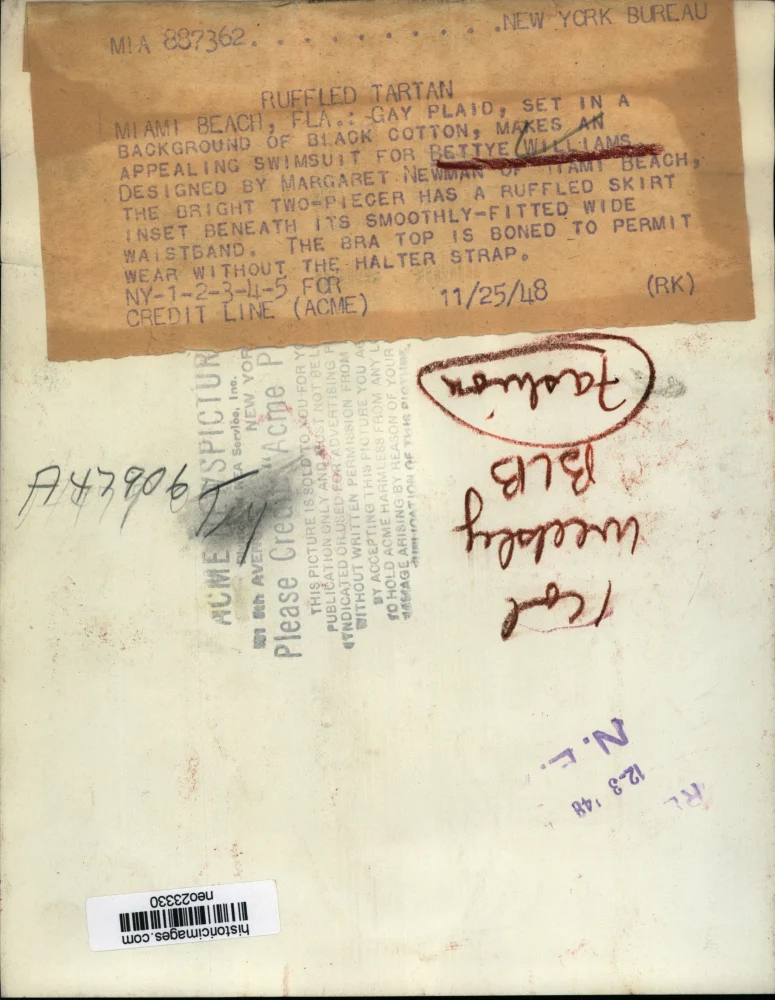 MIA 887362. . . . . . . . . . . .NEW YORK BUREAU
RUFFLED TARTAN
MIAMI BEACH, FLA.: GAY PLAID, SET IN A
BACKGROUND OF BLACK COTTON, MAKES AN
APPEALING SWIMSUIT FOR BETTYE WILLIAMS
DESIGNED BY MARGARET NEWMAN OF MIAMI BEACH,
THE BRIGHT TWO-PIECER HAS A RUFFLED SKIRT
INSET BENEATH ITS SMOOTHLY-FITTED WIDE
WAISTBAND. THE BRA TOP IS BONED TO PERMIT
WEAR WITHOUT THE HALTER STRAP.
NY-1-2-3-4-5 FOR
CREDIT LINE (ACME) 11/25/48 (RK)
Fashion
BLB
Weekly
1 Col
A47906
ACME SPICTUR
EA Service, Inc.
8th AVEN NEW YOR
Please Credit "Acme P
THIS PICTURE IS SOLD TO YOU FOR YO
PUBLICATION ONLY AND MUST NOT BE L
SYNDICATED OR USED FOR ADVERTISING P
WITHOUT WRITTEN PERMISSION FROM
BY ACCEPTING THIS PICTURE YOU A
TO HOLD ACME HARMLESS FROM ANY L
DAMAGE ARISING BY REASON OF YOUR
PUBLICATION OF THIS PICTURE.
N. E.
12-3 '48
historicimages.com
neo23330